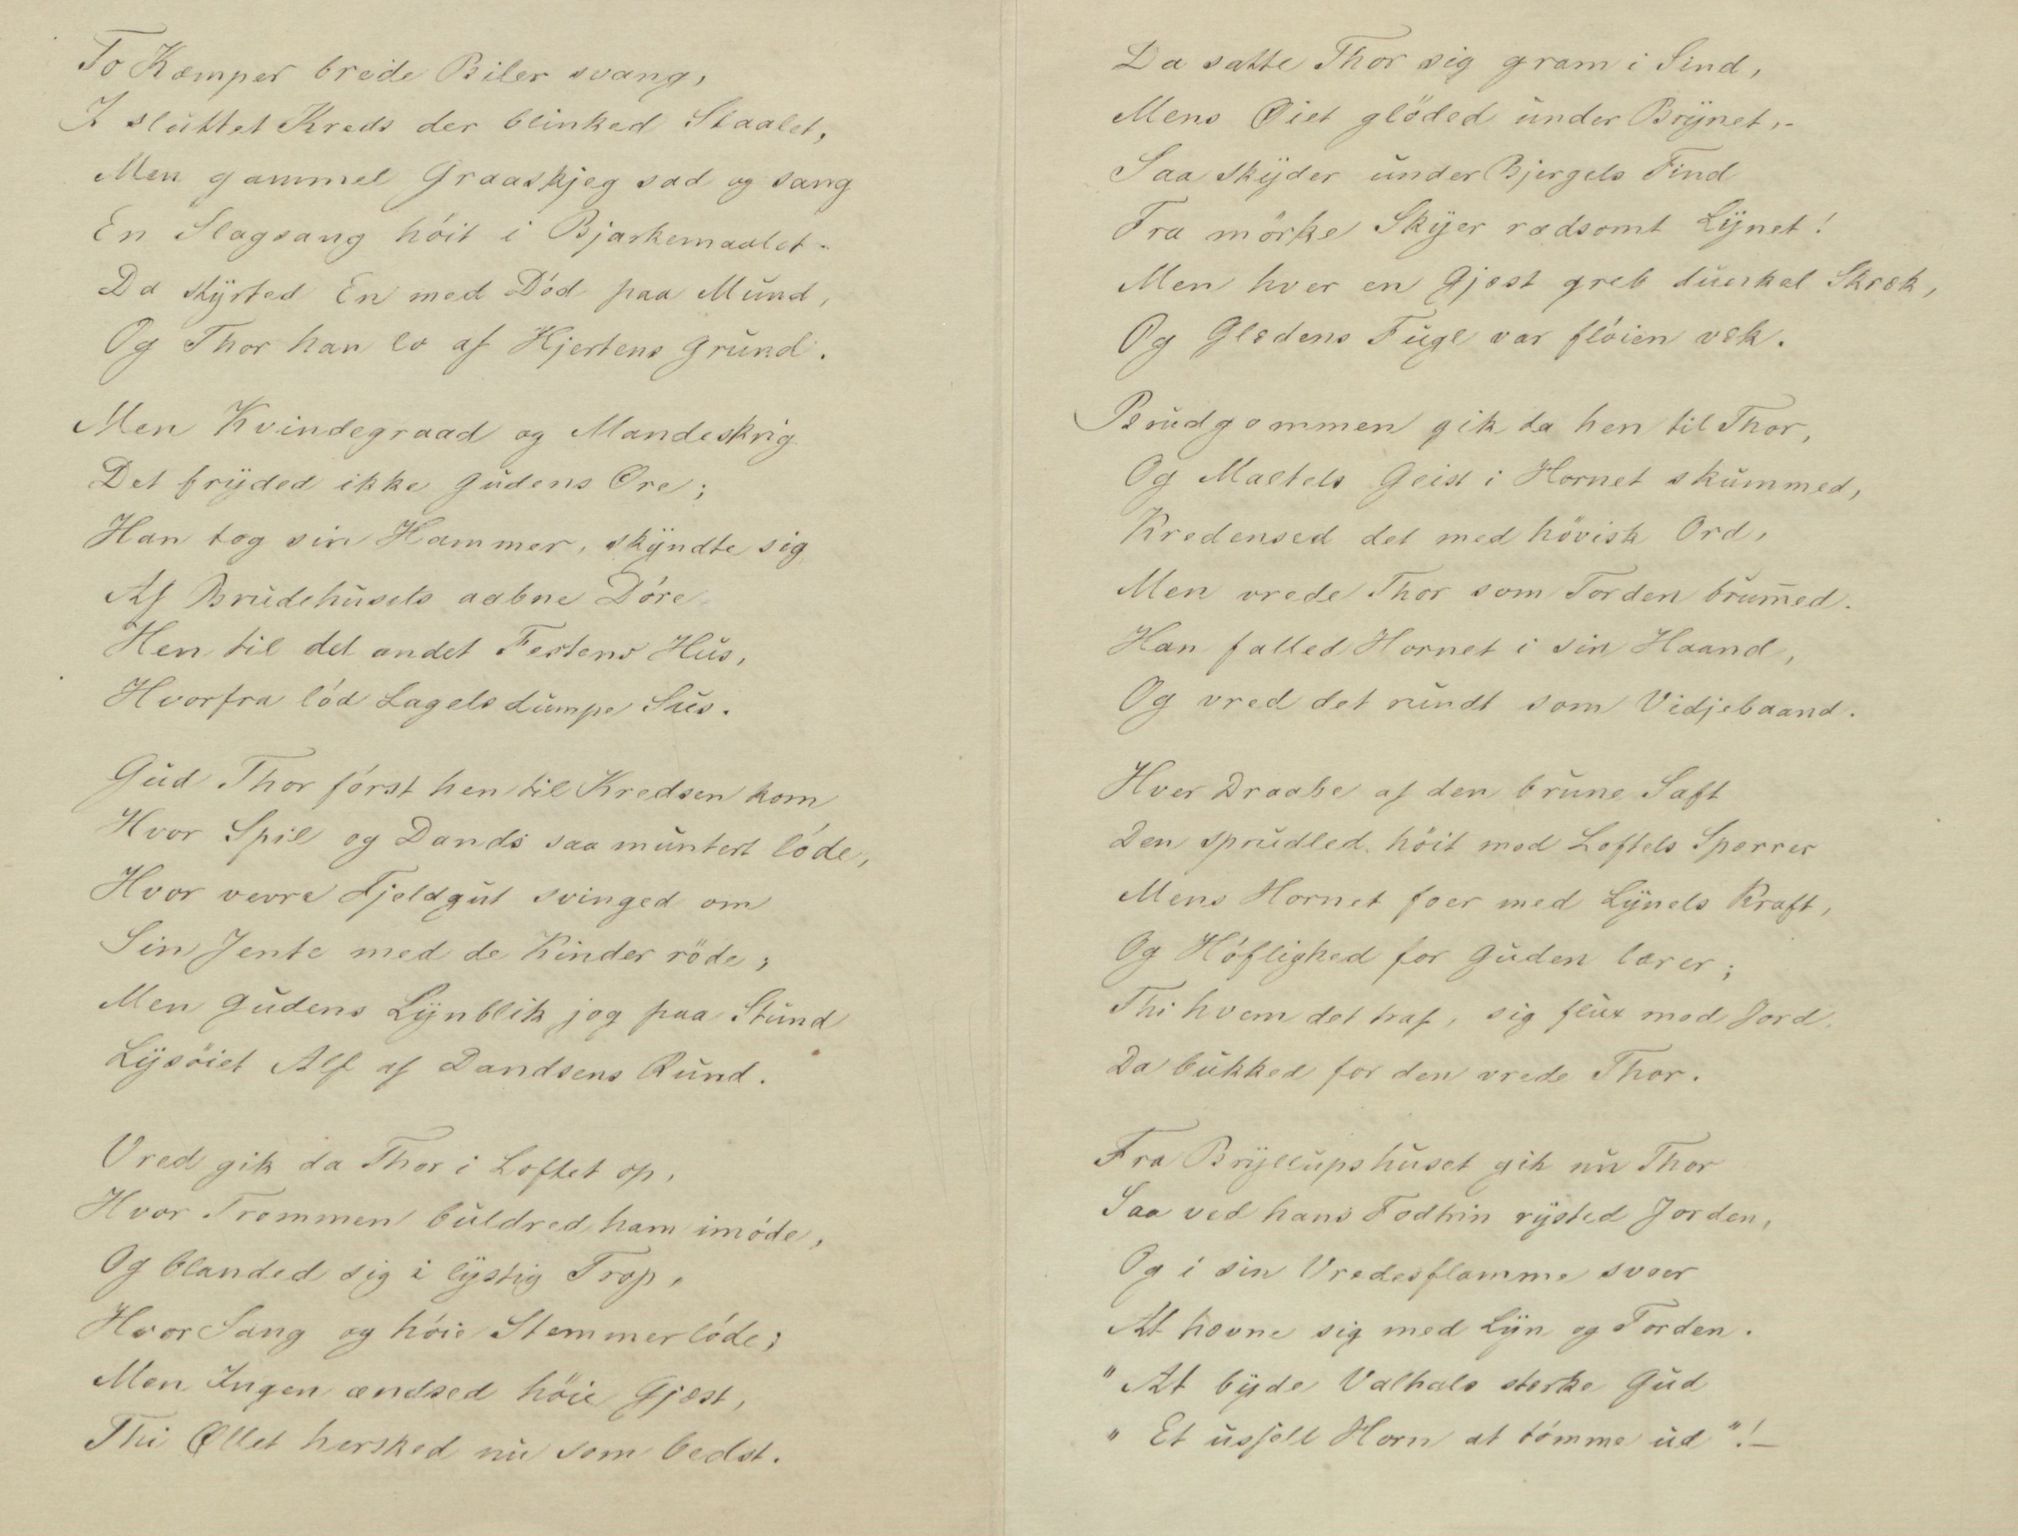 To Kæmper brede Biler svang,
I sluttet Kreds der blinked Staalet,
Men gammel Graaskjeg sad og sang
En Slagsang høit i Bjarkemaalet.
Da styrted En med Död paa Mund,
Og Thor han lo af Hjertens Grund.
Men Kvindegraad og Mandeskrig
Det fryded ikke Gudens Øre;
Han tog sin Hammer, skyndte sig
Af Brudehusets aabne Döre
Hen til det andet Festens Hus,
Hvorfra löd Lagets dumpe Sus.
Gud Thor först hen til Kredsen kom
Hvor Spil og Dands saa muntert löde,
Hvor vevre Fjeldgut svinged om
Sin Jente med de Kinder röde;
Men Gudens Lynblik jog paa Stund
Lysöiet Alf af Dandsens Rund.
Vred gik da Thor i Loftet op,
Hvor Trommen buldred ham imöde,
Og blanded sig i lystig Trop,
Hvor Sang og höie Stemmer löde;
Men Ingen ændsed höie Gjæst,
Thi Øllet hersked nu som bedst.
Da satte Thor sig gram i Sind,
Mens Øiet glöded under Brynet,-
Saa skyder under Bjergets Tind
Fra mörke Skyer rædsomt Lynet!
Men hver en Gjæst greb dunkel Skræk,
Og Glædens Fugl var flöien væk.
Brudgommen gik da hen til Thor,
Og Maltets Geist i Hornet skummed,
Kredensed det med hövisk Ord,
Men vrede Thor som Torden brum̅ed.
Han fatted Hornet i sin Haand,
Og vred det rundt som Vidjebaand.
Hver Draabe af den brune Saft
Den sprudled höit mod Loftets Sperrer
Mens Hornet foer med Lynets Kraft,
Og Höflighed for Guden lærer;
Thi hvem det traf, sig flux mod Jord
Da bukked for den vrede Thor.
Fra Bryllupshuset gik nu Thor
Saa ved hans Fodtrin rysted Jorden,
Og i sin Vredesflamme svoer
At hævne sig med Lyn og Torden.
"At byde Valhals sterke Gud
" Et usselt Horn at tömme ud"!—